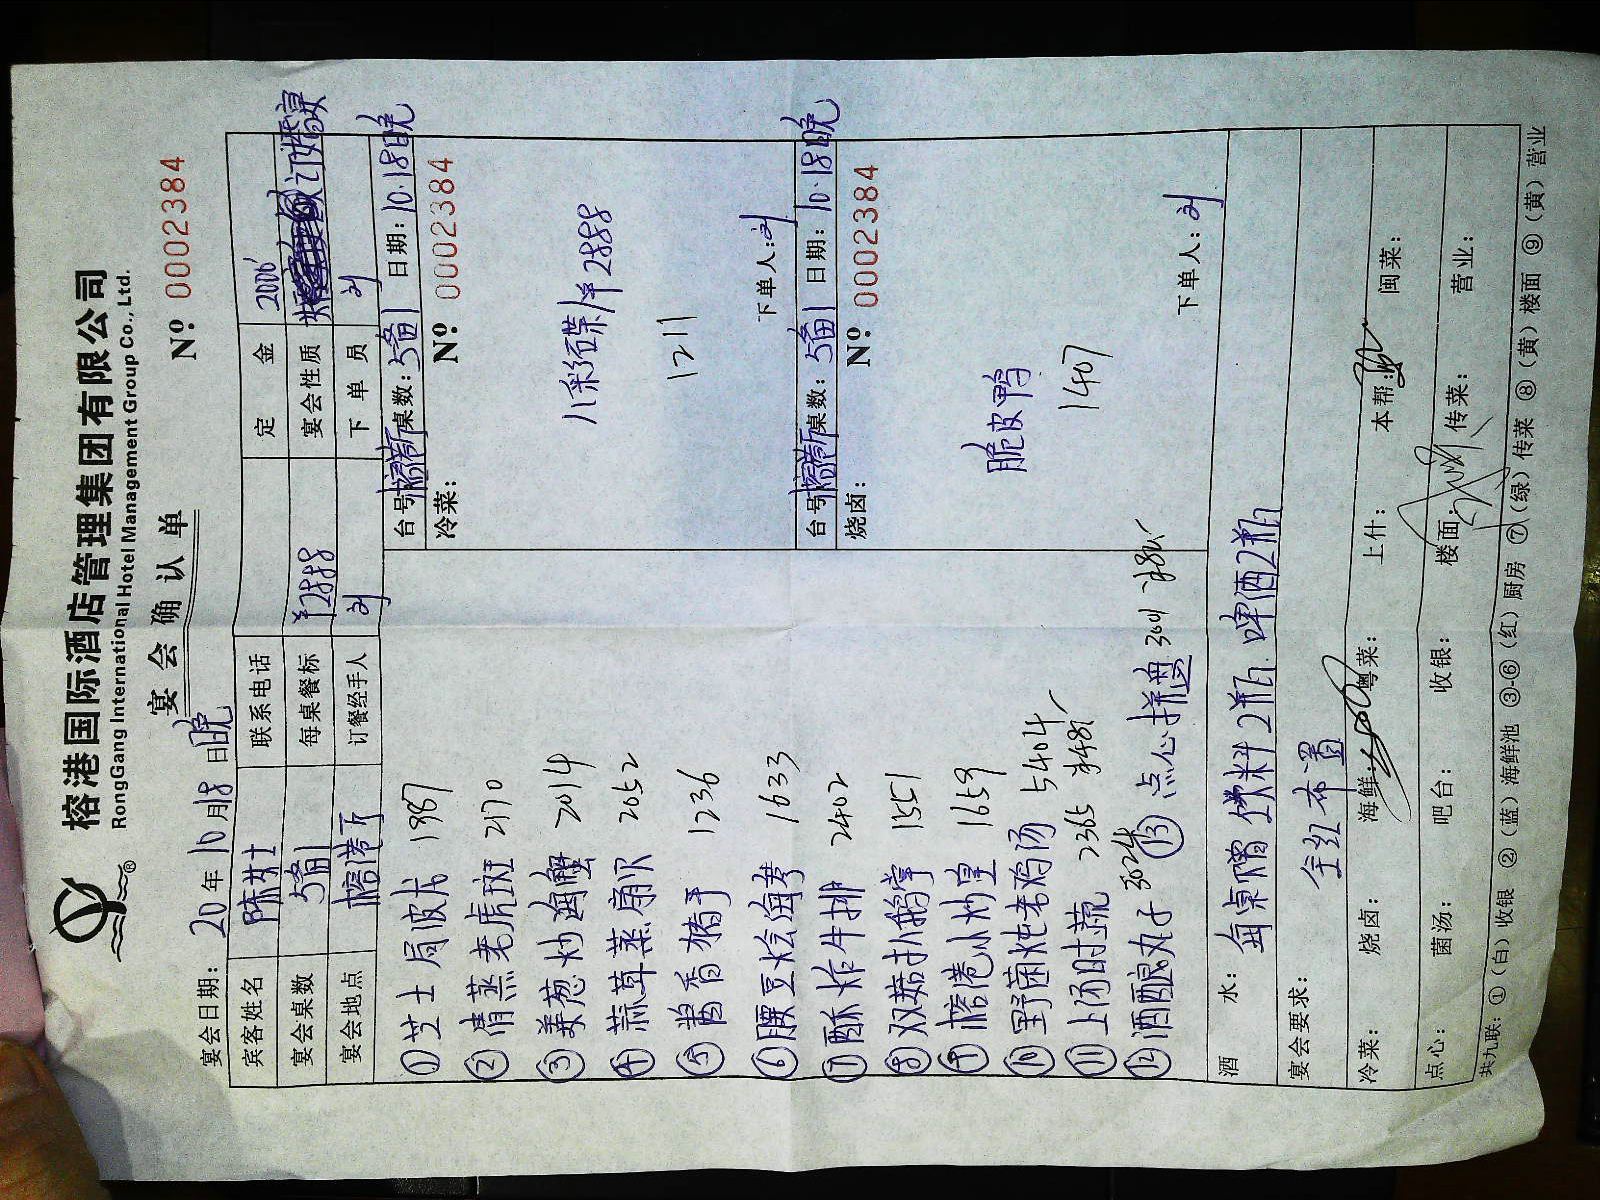 榕港国际酒店管理集团有限公司
RongGang International Hotel Management Group Co., Ltd.
宴会确认单
宴会日期：20 年10月18日晚 Nº 0002384
宾客姓名 陈女士 联系电话 定金 2000
宴会桌数 5备1 每桌餐标 ¥2888 宴会性质 订婚宴
宴会地点 榕港厅 订餐经手人 刘 下单员 刘
台号 榕港厅 桌数：5备1 日期：10.18晚
冷菜： Nº 0002384
八彩碟 2888
1211
下单人：刘
台号 榕港厅 桌数：5备1 日期：10.18晚
烧卤： Nº 0002384
脆皮鸭
1407
下单人：刘
①芝士局波龙 1987
②清蒸老虎斑 2170
③姜葱炒海蟹 2014
④蒜茸蒸扇贝 2052
⑤酱香猪手 1236
⑥腰豆烩海参 1633
⑦酥炸牛排 2402
⑧双菇扒鹅掌 1551
⑨榕港小炒皇 1659
⑩野菌炖老鸡汤 5404
⑪上汤时蔬 2365
⑫酒酿丸子 3024
⑬点心拼盘
酒水： 每桌赠饮料2瓶. 啤酒2瓶
宴会要求： 全红布置
冷菜： 烧卤： 海鲜： 粤菜： 上什： 本帮： 闽菜：
点心： 菌汤： 吧台： 收银： 楼面： 传菜： 营业：
共九联：①（白）收银 ②（蓝）海鲜池 ③-⑥（红）厨房 ⑦（绿）传菜 ⑧（黄）楼面 ⑨（黄）营业